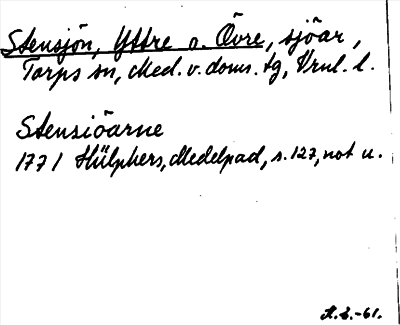 Stensjön, Yttre o. Övre, sjöar,
Torps sn, Med. v. doms. tg, Vrnl. l.
Stensiöarne
1771 Hülphers, Medelpad, s. 127, not u.
S.E.-61.